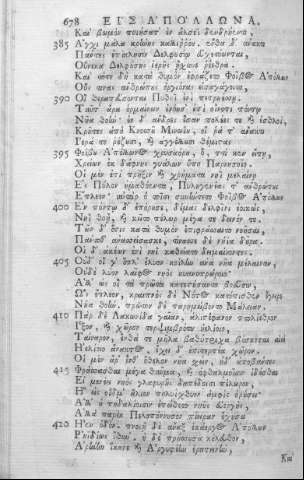 678 ΕΙΣ ΑΠΟΛΛΩΝΑ.
Καὶ βωμὸν ποιήσατ' ἐν ἄλσεϊ δενδρήεντι,
385 Ἄγχι μάλα κρήνης καλλιῤῥόου, ἔνθα δ' ἄνακτι
Πάντες ἐπίκλησιν Δελφουσίῳ εὐχετόωνται,
Οὕνεκα Δελφούσης ἱερῆς ᾔσχυνε ῥέεθρα.
Καὶ τότε δὴ κατὰ θυμὸν ἐφράζετο Φοῖβος Ἀπόλλων
Οὕς τινας ἀνθρώπους ὀργείονας εἰσαγάγοιτο,
390 Οἳ θεραπεύσονται Πυθοῖ ἐνὶ πετρηέσσῃ.
Ταῦτ' ἄρα ὁρμαίνων ἐνόησ' ἐπὶ οἴνοπι πόντῳ
Νῆα θοήν· ἐν δ' ἄνδρες ἔσαν πολέες τε καὶ ἐσθλοί,
Κρῆτες ἀπὸ Κνωσοῦ Μινωΐου, οἵ ῥά τ' ἄνακτι
Ἱερά τε ῥέζουσι, καὶ ἀγγέλλουσι θέμιστας
395 Φοίβου Ἀπόλλωνος χρυσαόρου, ὅ,ττί κεν εἴπῃ,
Χρείων ἐκ δάφνης γυάλων ὕπο Παρνησοῖο.
Οἱ μὲν ἐπὶ πρῆξιν καὶ χρήματα νηῒ μελαίνῃ
Ἐς Πύλον ἠμαθόεντα, Πυληγενέας τ' ἀνθρώπους
Ἔπλεον· αὐτὰρ ὁ τοῖσι συνήντετο Φοῖβος Ἀπόλλων
400 Ἐν πόντῳ δ' ἐπόρουσε, δέμας δελφῖνι ἐοικώς,
Νηῒ θοῇ, καὶ κεῖτο πέλωρ μέγα τε δεινόν τε.
Τῶν δ' ὅστις κατὰ θυμὸν ἐπεφράσατο νοῆσαι,
Πάντοσ' ἀνασσείσασκε, τίνασσε δὲ νήϊα δοῦρα.
Οἱ δ' ἀκέων ἐνὶ νηῒ καθήατο δειμαίνοντες.
405 Οὐδ' οἵ γ' ὅπλ' ἔλυον κοίλην ἀνὰ νῆα μέλαιναν,
Οὐδ' ἔλυον λαῖφος νηὸς κυανοπρώροιο·
Ἀλλ' ὡς τὰ πρῶτα κατεστήσαντο βοεῦσιν,
Ὣς ἔπλεον, κραιπνὸς δὲ Νότος κατόπισθεν ἔγειρε
Νῆα θοήν, πρῶτον δὲ παρημείβοντο Μάλειαν.
410 Πὰρ δὲ Λακωνίδα γαῖαν, ἁλιστέφανον πτολίεθρον
Ἷξον, καὶ χῶρον τερψιμβρότου ἠελίοιο,
Ταίναρον, ἔνθα τε μῆλα βαθύτριχα βόσκεται αἰεὶ
Ἠελίοιο ἄνακτος, ἔχει δ' ἐπιτερπέα χῶρον.
Οἱ μὲν ἄρ' ἔνθ' ἔθελον νῆα σχεῖν, ἠδ' ἀποβάντες
415 Φράσσασθαι μέγα θαῦμα, καὶ ὀφθαλμοῖσιν ἰδέσθαι
Εἰ μενέει νηὸς γλαφυρῆς δαπέδοισι πέλωρον,
Ἢ εἰς οἶδμ' ἅλιον πολυΐχθυον ἀμφὶς ὀρούσει·
Ἀλλ' οὐ πηδαλίοισιν ἐπείθετο νηῦς εὐεργός,
Ἀλλὰ παρὲκ Πελοπόννησον πίειραν ἔχουσα
420 Ἤϊεν ὁδόν. πνοιῇ δὲ ἄναξ ἑκάεργος Ἀπόλλων
Ῥηϊδίως ἴθυν'. ἡ δὲ πρήσσουσα κέλευθον,
Ἀρήνην ἵκανε καὶ Ἀργυφέην ἐρατεινήν,
Καὶ